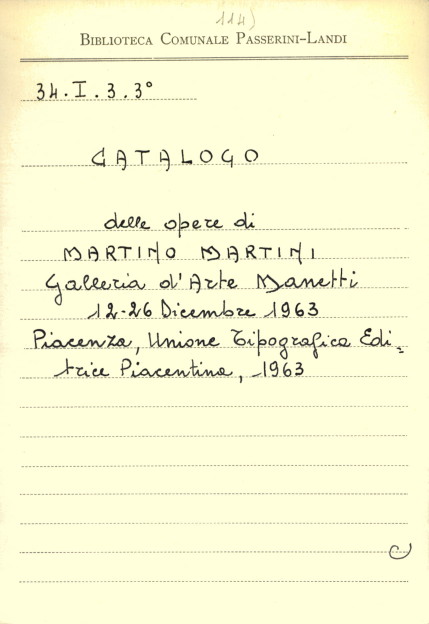 114)
BIBLIOTECA COMUNALE PASSERINI-LANDI
34.I.3.3°
CATALOGO
delle opere di
MARTINO MARTINI
Galleria d'Arte Manetti
12-26 Dicembre 1963
Piacenza, Unione Tipografica Edi=
trice Piacentina, 1963
C